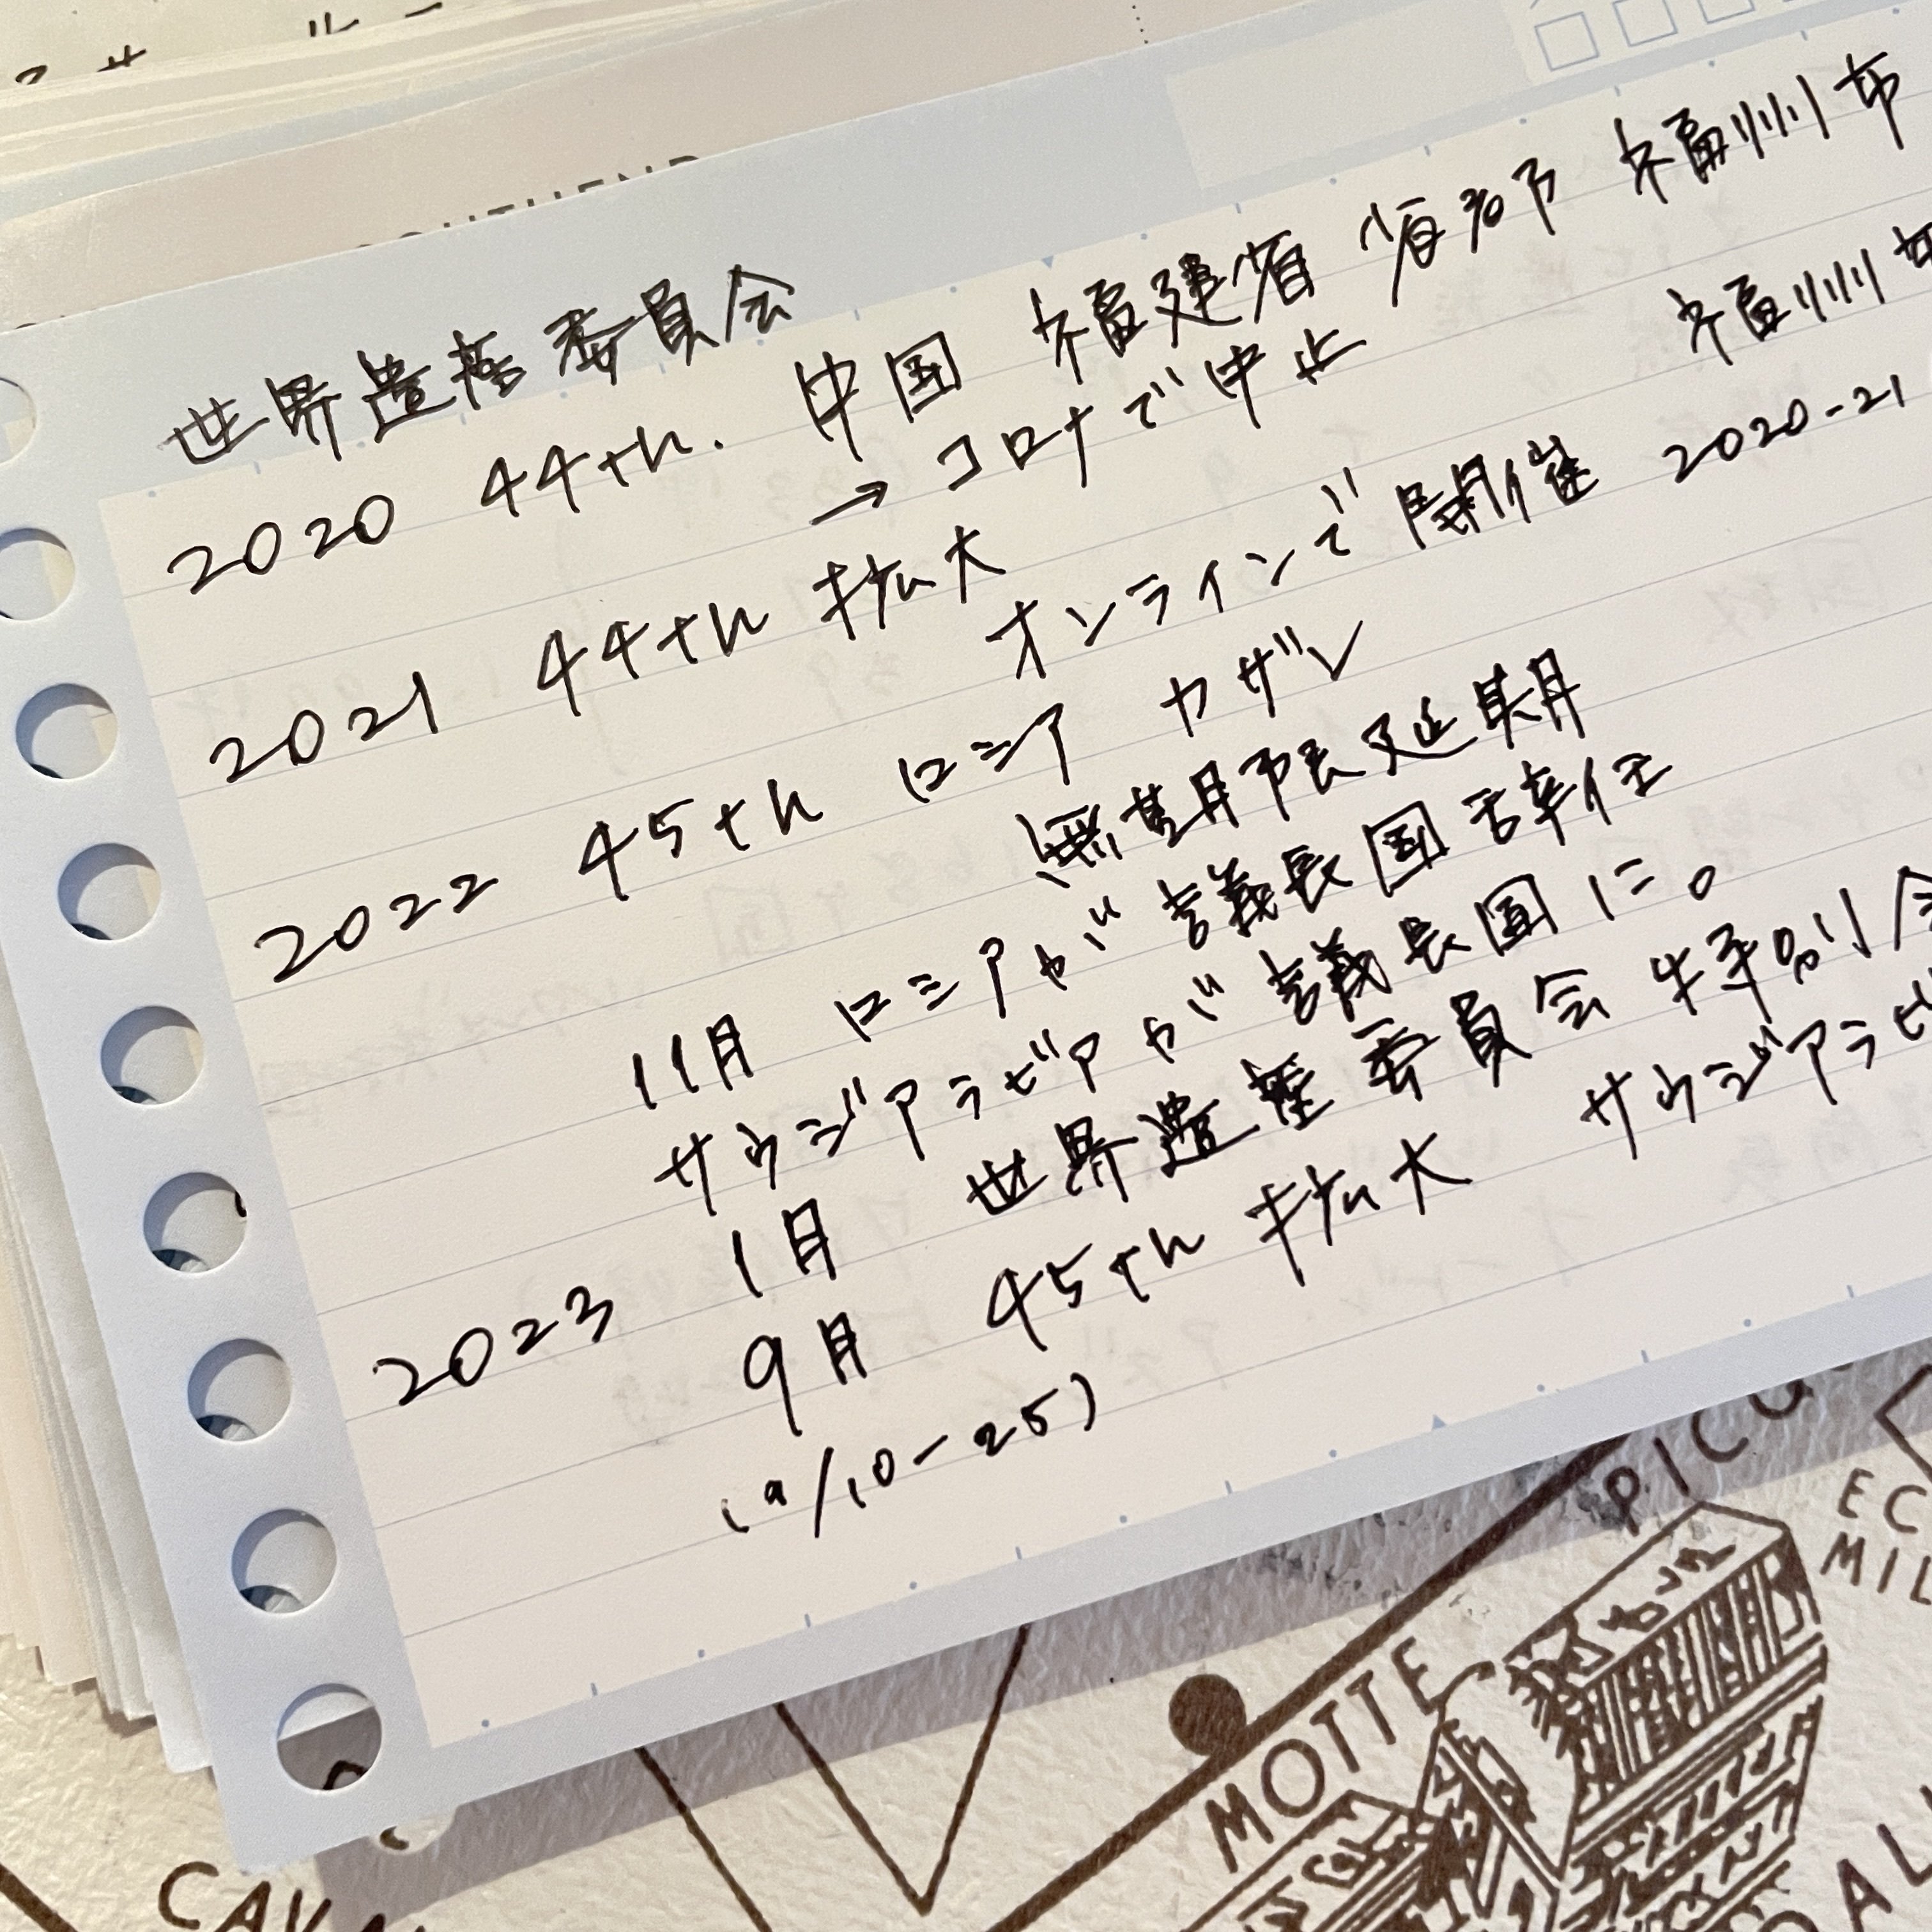 世界遺産委員会
2020 44th. 中国 福建省 省都 福州市
→ コロナで中止
2021 44th 拡大 福州市
オンラインで開催 2020-21
2022 45th ロシア カザン
無期限延期
11月 ロシアが議長国辞任
サウジアラビアが議長国に。
2023 1月 世界遺産委員会 特別会
9月 45th 拡大 サウジアラビ
(9/10-25)
MOTTE
PICC
EC
MIL
CAVA
AL